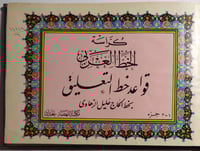 كراسة
الخط العربي
قواعد خط التعليق
بخط الحاج خليل الزهاوي